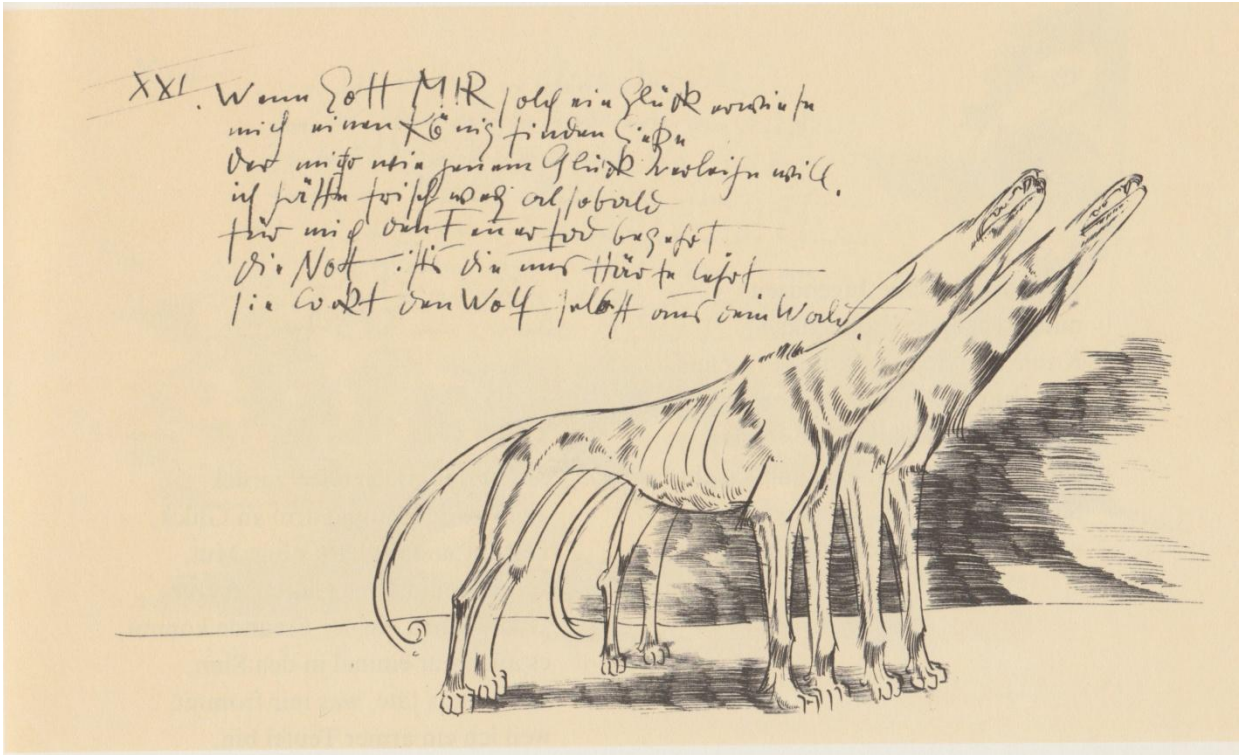 XXI. Wenn Gott MIR solch ein Glück erwiese
mich einen König finden ließe
der mir wie jenem Glück verleihn will.
ich hätte frisch weg alsobald
für mich den Feuertod begehrt
die Nott ists die uns Härte lehrt
sie lockt den Wolf selbst aus dem Wald